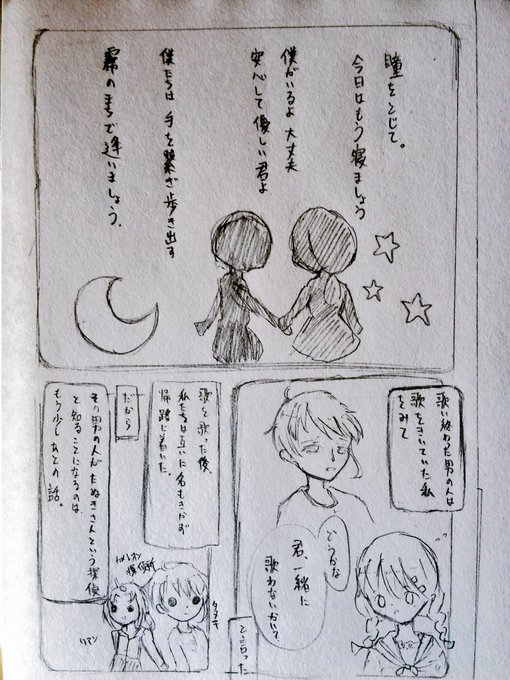 瞳をとじて。
今日はもう寝ましょう
僕がいるよ 大丈夫
安心して優しい君よ
僕たちは 手を繋ぎ歩き出す
霧のまちで逢いましょう.
歌い終わった男の人は
歌をきいていた私
をみて
どうかな
君、一緒に
歌わないかい?
と言った
歌を歌った後、
私たちは互いに名もきかず
帰路に着いた。
だから
その男の人がたぬきさんという探偵
と知ることになるのは、
もう少しあとの話。
探偵所
タヌキ